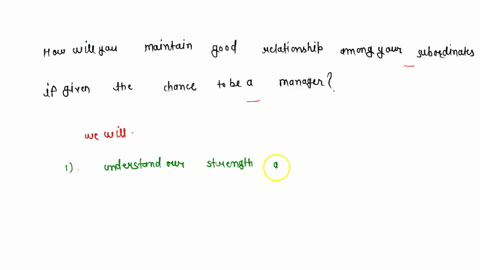 How will you maintain good relationship among your subordinates
if given the chance to be a manager?
we will.
1). understand our strength a